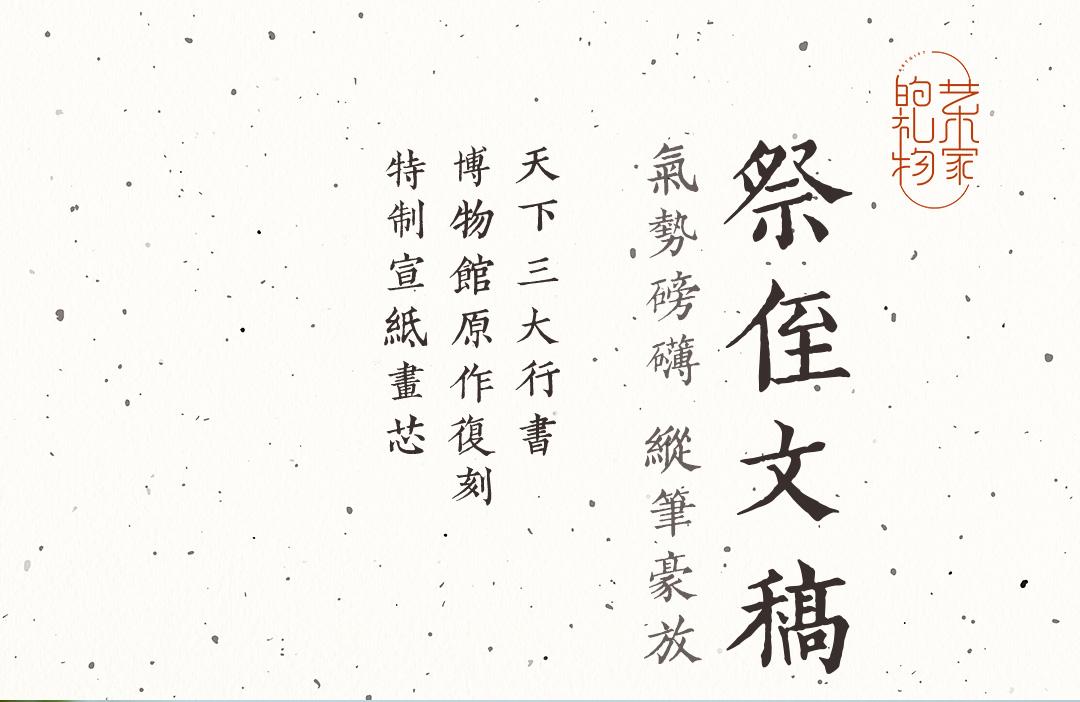 艺术家
的礼物
祭侄文稿
氣勢磅礴 縱筆豪放
天下三大行書
博物館原作復刻
特制宣紙畫芯